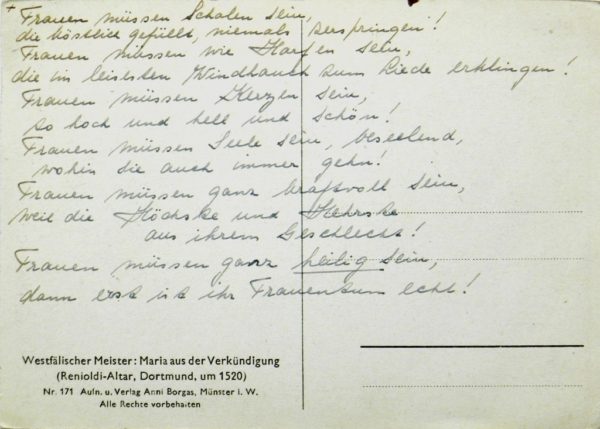 + Frauen müssen Schalen sein,
die köstlich gefüllt, niemals zerspringen!
Frauen müssen wie Harfen sein,
die im leisesten Windhauch zum Liede erklingen!
Frauen müssen Kerzen sein,
so hoch und hell und schön!
Frauen müssen Seele sein, beseelend,
wohin die auch immer gehn!
Frauen müssen ganz kraftvoll sein,
weil die Höchste und Hehrste
aus ihrem Geschlecht!
Frauen müssen ganz heilig sein,
dann erst ist ihr Frauentum echt!
Westfälischer Meister: Maria aus der Verkündigung
(Renioldi-Altar, Dortmund, um 1520)
Nr. 171 Aufn. u. Verlag Anni Borgas, Münster i. W.
Alle Rechte vorbehalten